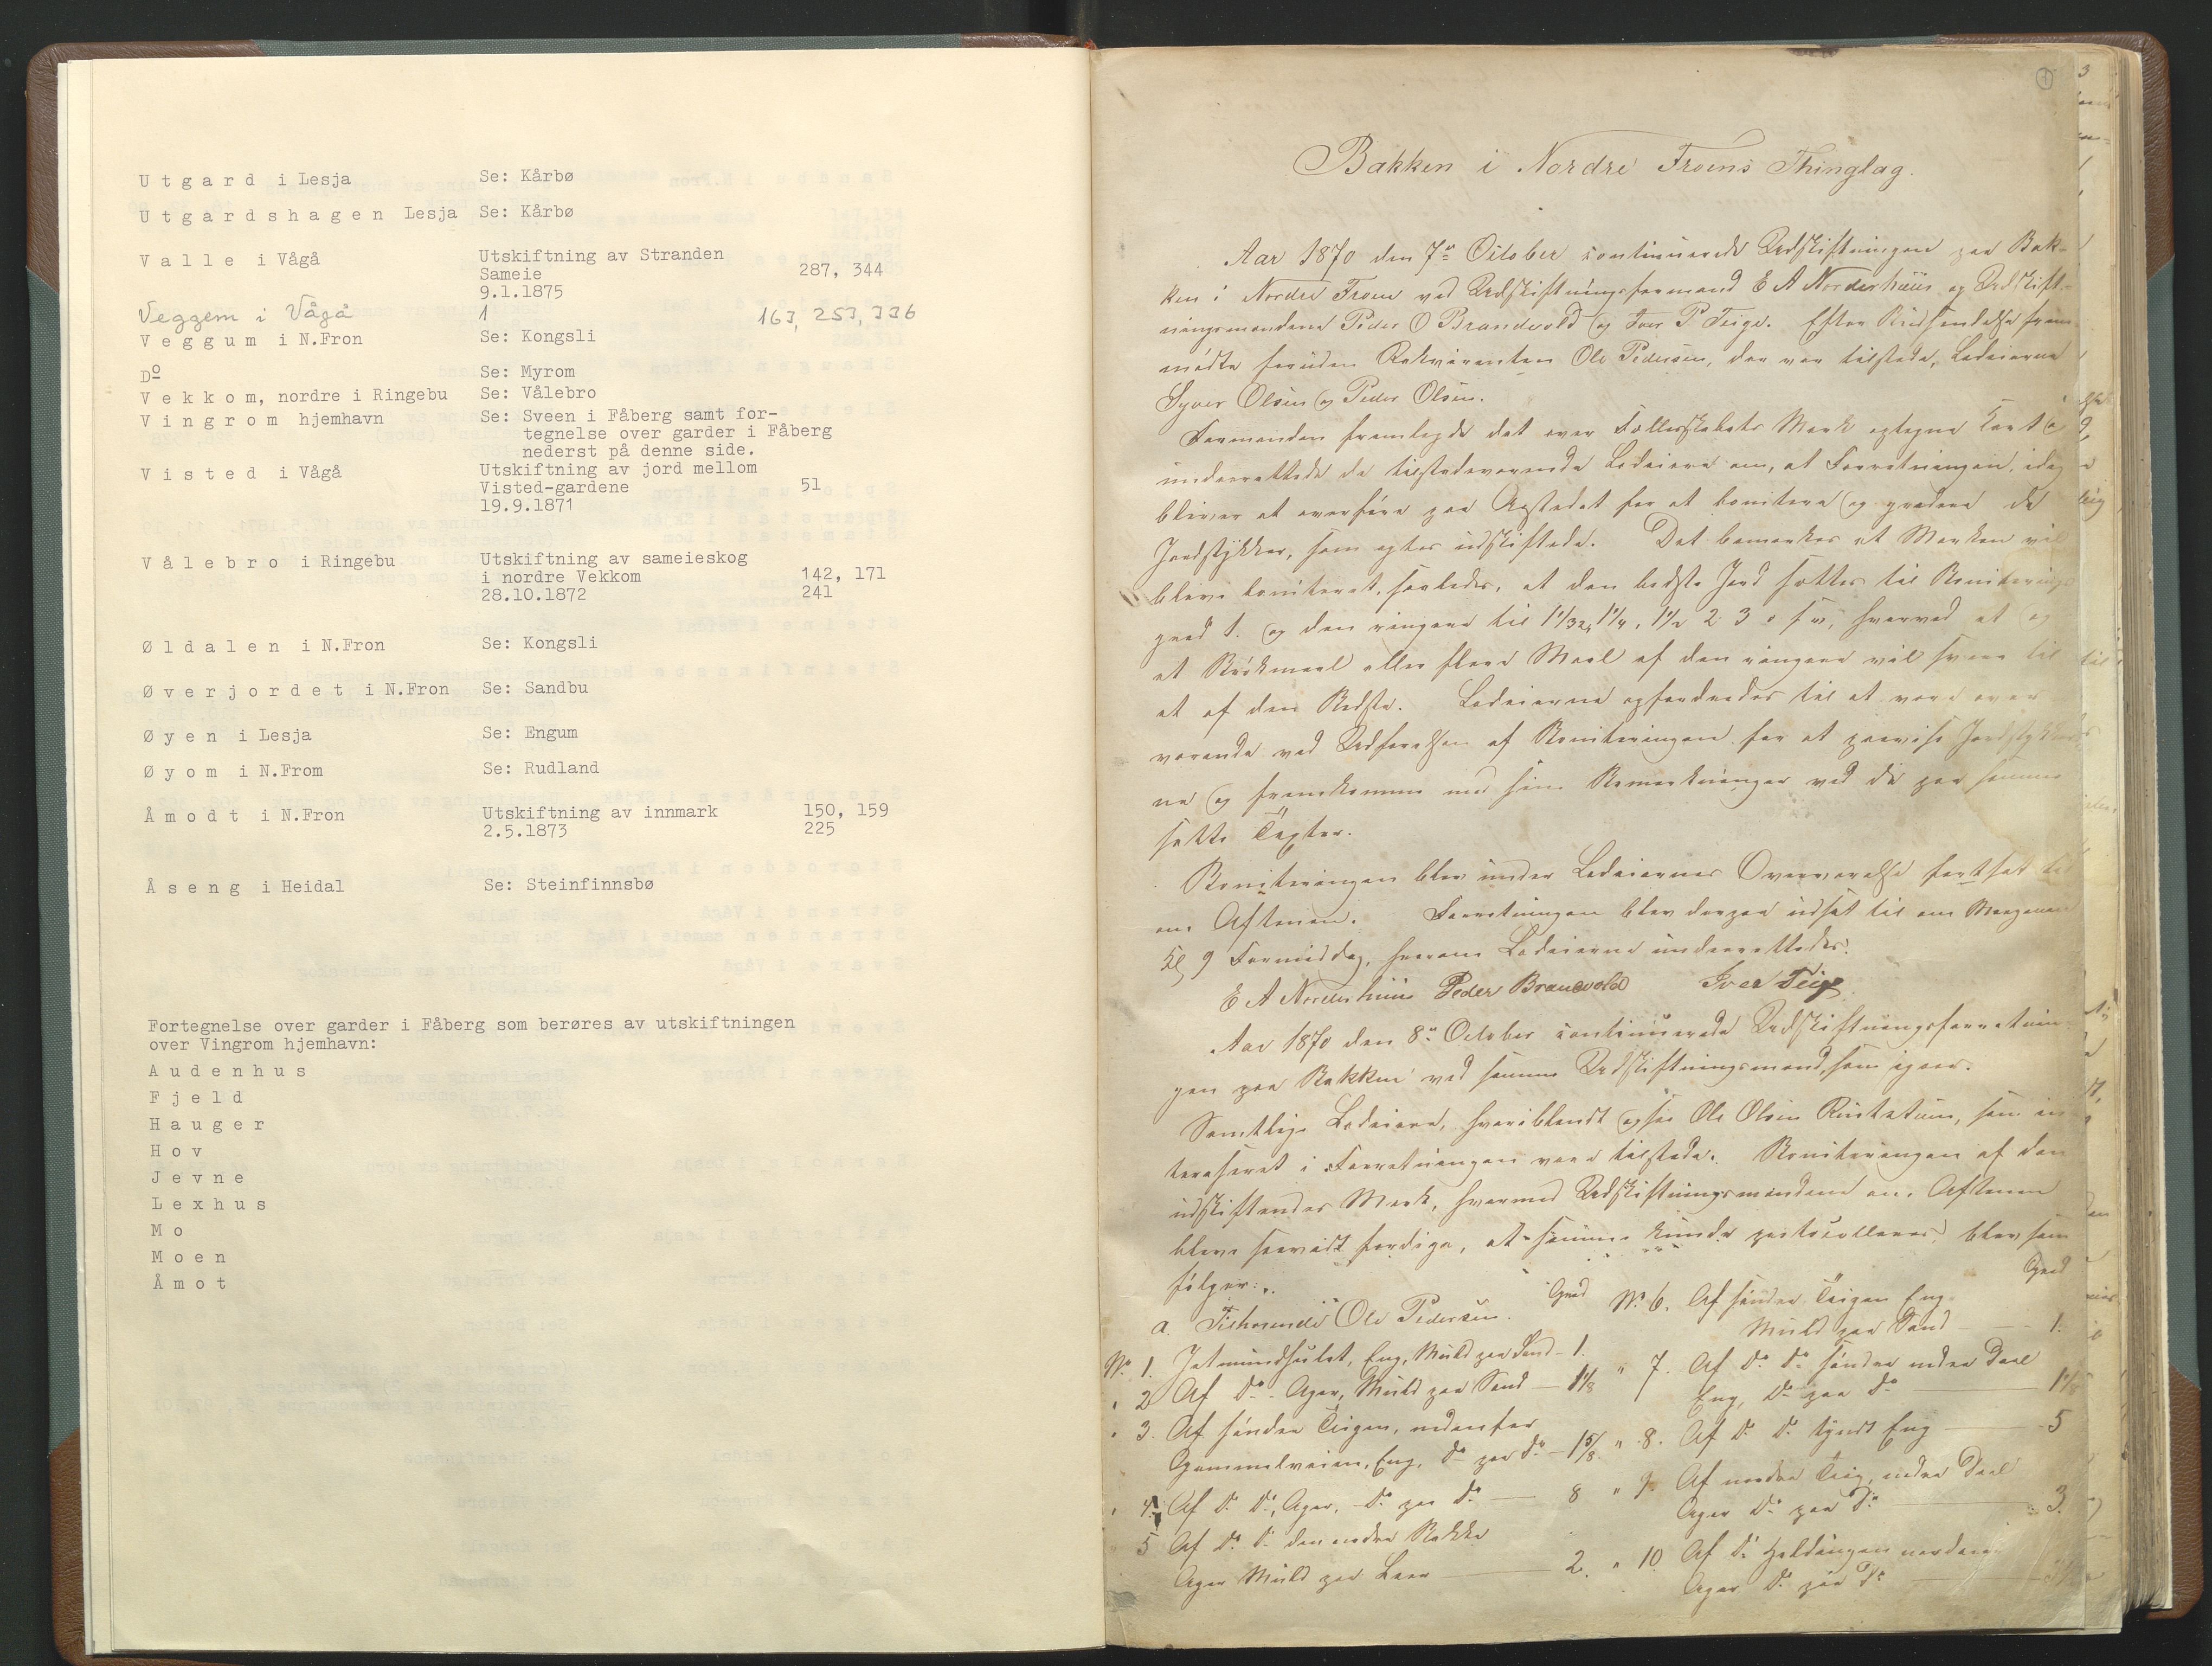 Utgard i Lesja Se: Kårbø
Utgardshagen Lesja Se: Kårbø
Valle i Vågå Utskiftning av Stranden
Sameie 287, 344
9.1.1875
Veggem i Vågå 1 163, 253, 336
Veggum i N.Fron Se: Kongsli
Dº Se: Myrom
Vekkom, nordre i Ringebu Se: Vålebro
Vingrom hjemhavn Se: Sveen i Fåberg samt for-
tegnelse over garder i Fåberg
nederst på denne side.
Visted i Vågå Utskiftning av jord mellom
Visted-gardene 51
19.9.1871
Vålebro i Ringebu Utskiftning av sameieskog
i nordre Vekkom 142, 171
28.10.1872 241
Øldalen i N.Fron Se: Kongsli
Øverjordet i N.Fron Se: Sandbu
Øyen i Lesja Se: Engum
Øyom i N.From Se: Rudland
Åmodt i N.Fron Utskiftning av innmark 150, 159
2.5.1873 225
Åseng i Heidal Se: Steinfinnsbø
Fortegnelse over garder i Fåberg som berøres av utskiftningen
over Vingrom hjemhavn:
Audenhus
Fjeld
Hauger
Hov
Jevne
Lexhus
Mo
Moen
Åmot
1
Bakken i Nordre Froens Thinglag.
Aar 1870 den 7de October continuerede Udskiftningen paa Bak-
ken i Nordre Froen ved Udskiftningsformand E A Norderhuus og Udskift-
ningsmændene Peder O Brandvold og Iver P Teige. Efter Tilsendelse frem-
mødte foruden Rekvirenten Ole Pedersen, der var tilstede, Lodeierne
Syver Olsen og Peder Olsen.
Formanden fremlagde det over Fællesskabets Mark optagne Kart &
underrettede de tilstedeværende Lodeiere om, at Forretningen idag
bliver at overføre paa Aastedet for at bonitere og gradere de
Jordstykker, som agtes udskiftede. Det bemærkes at Marken vil
blive boniteret saaledes, at den bedste Jord sættes til Boniterings
grad 1. og den ringere til 1 1/32, 1 1/4, 1 1/2 2 3 o s v, hvorved et og
et Brökmaal eller flere Maal af den ringere vil svare til
et af den Bedste. Lodeierne opfordredes til at være over
værende ved Udførelsen af Boniteringen for at paavise Jordstykker
ne og fremkomme med sine Bemærkninger ved de paa samme
satte Taxter.
Boniteringen blev under Lodeiernes Overværelse fortsat til
om Aftenen. Forretningen blev derpaa udsat til om Morgenen
Kl 9 Formiddag, hvorom Lodeierne underrettedes.
E A Norderhuus Peder Brandvold Iver Teige
Aar 1870 den 8de October continuerede Udskiftningsforretnin
gen paa Bakken ved samme Udskiftningsmænd, som igaar.
Samtlige Lodeiere, hvoriblandt ogsaa Ole Olsen, som in
teresseret i Forretningen vare tilstede. Boniteringen af den
udskiftendes Mark, hvormed Udskiftningsmændene om Aftenen
bleve saavidt færdige, at samme kunde protocolleres, blev som
følger:
a. Tilhørende Ole Pedersen. Grad
No 1. Eng, Muld paa Sand - 1.
" 2 Af Do. Ager, Muld paa Sand — 1 1/8
" 3. Af søndre Teigen, nedenfor
Gammelveien, Eng, Do paa Do — 1 5/8.
" 4. Af Do Do, Ager, Do paa Do — 8
5 Af Do Do den nedre Bakke
Ager Muld paa Leer — 2.
No 6. Af søndre Teigen Eng Grad
Muld paa Sand — 1.
" 7. Af Do Do søndre nedre Deel
Eng, Do paa Do — 1 1/8
" 8. Af Do Do tyndt Eng — 5
" 9. Af nordre Teig, nedre Deel
Ager Do paa Do — 3.
" 10 Af Do Heldingen nordover
Ager Do paa Do